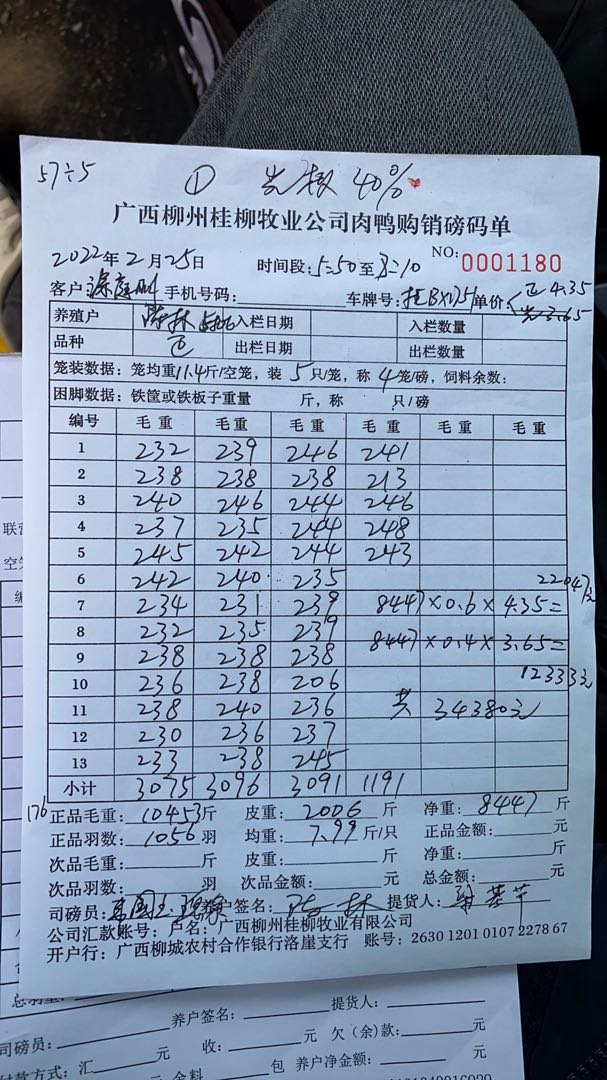 57÷5
① 光 40%
广西柳州桂柳牧业公司肉鸭购销磅码单
2022年2月25日 时间段:5:50至8:10 NO:0001180
客户: 手机号码: 车牌号: 单价 正4.35
3.65
养殖户 陈林 入栏日期 入栏数量
品种 正 出栏日期 出栏数量
笼装数据:笼均重11.4斤/空笼,装5只/笼,称4笼/磅,饲料余数:
困脚数据:铁筐或铁板子重量 斤,称 只/磅
编号 毛重 毛重 毛重 毛重 毛重 毛重
1 232 239 246 241
2 238 238 238 213
3 240 246 244 246
4 237 235 244 248
5 245 242 244 243
6 242 240 235 22047元
7 234 231 239 8447×0.6×4.35=
8 232 235 239 8447×0.4×3.65=
9 238 238 238
10 236 238 206 12333元
11 238 240 236 共 34380元
12 230 236 237
13 233 238 245
小计 3075 3096 3091 1191
176
正品毛重:10453斤 皮重:2006斤 净重:8447斤
正品羽数:1056羽 均重:7.99斤/只 正品金额: 元
次品毛重: 斤 皮重: 斤 净重: 斤
次品羽数: 羽 次品金额: 元 总金额: 元
司磅员: 养户签名:陈林 提货人:
公司汇款账号:户名:广西柳州桂柳牧业有限公司
开户行:广西柳城农村合作银行洛崖支行 账号:2630 1201 0107 2278 67
养户签名: 提货人:
司磅员: 元 收: 元 欠(余)款: 元
付款方式:汇 元 包 养户净金额: 元